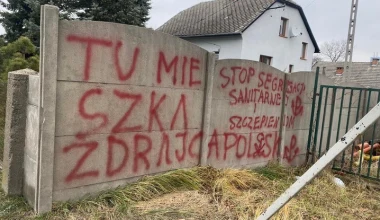 TU MIE
SZKA
ZDRAJCA POLSKI
STOP SEGREGACJI
SANITARNEJ
SZCZEPIENIOM